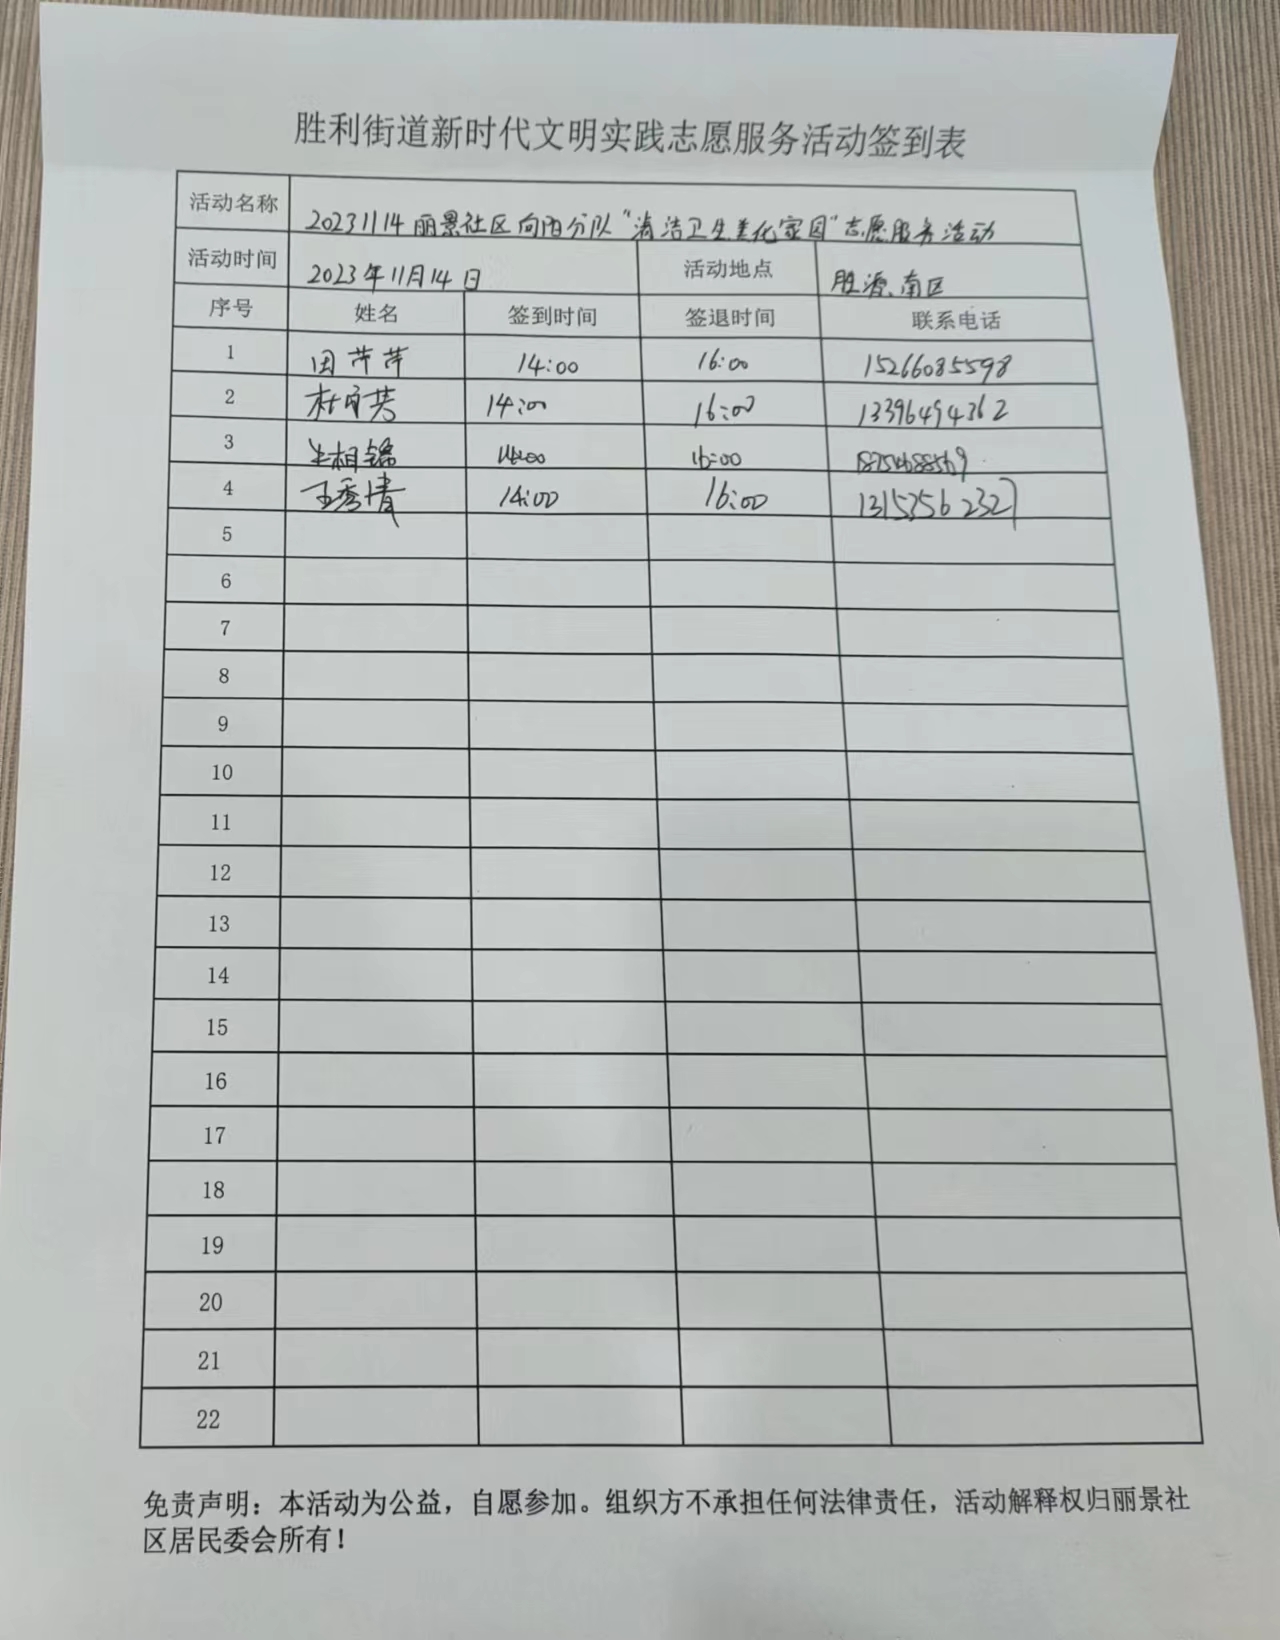 胜利街道新时代文明实践志愿服务活动签到表
活动名称 20231114丽景社区向阳分队“清洁卫生美化家园”志愿服务活动
活动时间 2023年11月14日 活动地点 胜源南区
序号 姓名 签到时间 签退时间 联系电话
1 田芹芹 14:00 16:00 15266085598
2 杜 芳 14:00 16:00 13396494362
3 相锦 14:00 16:00
4 王秀清 14:00 16:00 13153562327
5
6
7
8
9
10
11
12
13
14
15
16
17
18
19
20
21
22
免责声明：本活动为公益，自愿参加。组织方不承担任何法律责任，活动解释权归丽景社
区居民委会所有！